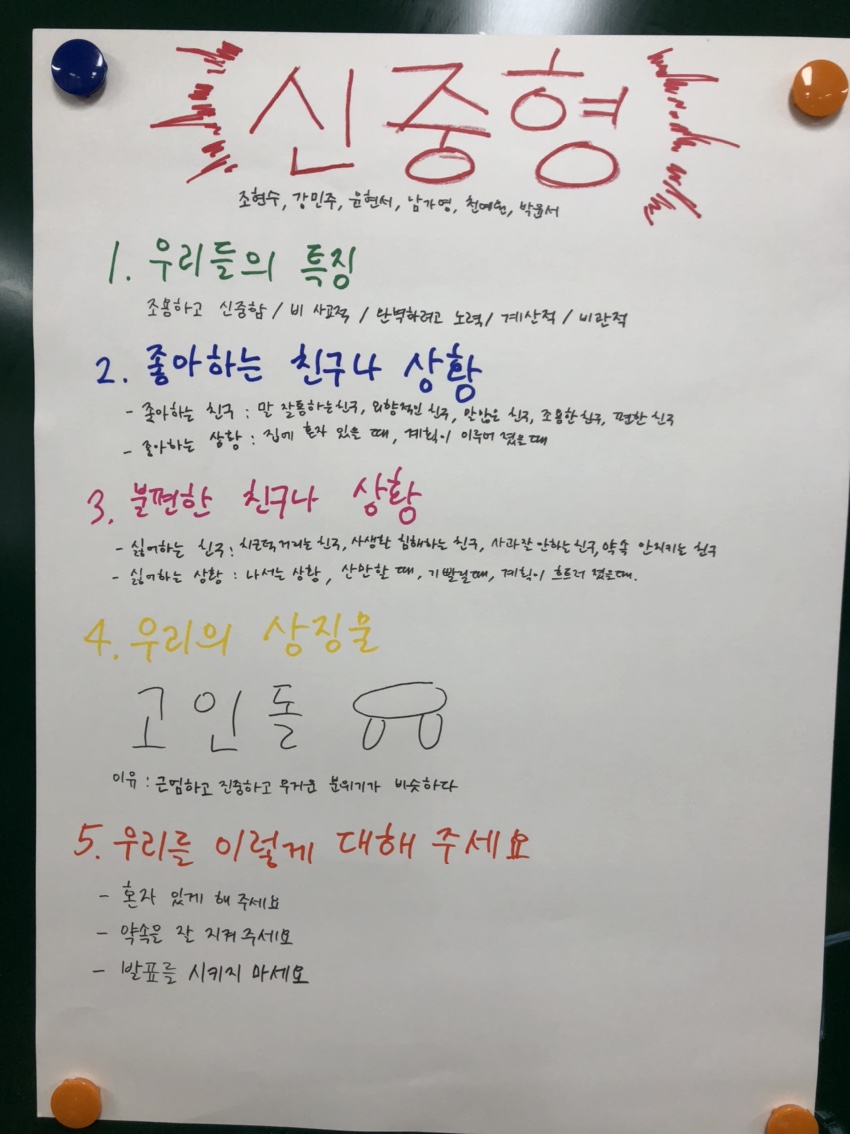 신중형
조현수, 강민주, 윤현서, 남가영, 천예원, 박윤서
1. 우리들의 특징
조용하고 신중함 / 비 사교적 / 완벽하려고 노력 / 계산적 / 비관적
2. 좋아하는 친구나 상황
- 좋아하는 친구 : 말 잘통하는친구, 외향적인 친구, 안앉은 친구, 조용한 친구, 편한 친구
- 좋아하는 상황 : 집에 혼자 있을 때, 계획이 이루어 졌을때
3. 불편한 친구나 상황
- 싫어하는 친구 : 치근덕거리는 친구, 사생활 침해하는 친구, 사과 잘 안하는 친구, 약속 안지키는 친구
- 싫어하는 상황 : 나서는 상황, 산만할 때, 기빨릴때, 계획이 흐트러 졌을때.
4. 우리의 상징물
고인돌
이유 : 근엄하고 진중하고 무거운 분위기가 비슷하다
5. 우리를 이렇게 대해 주세요
- 혼자 있게 해 주세요
- 약속을 잘 지켜 주세요
- 발표를 시키지 마세요